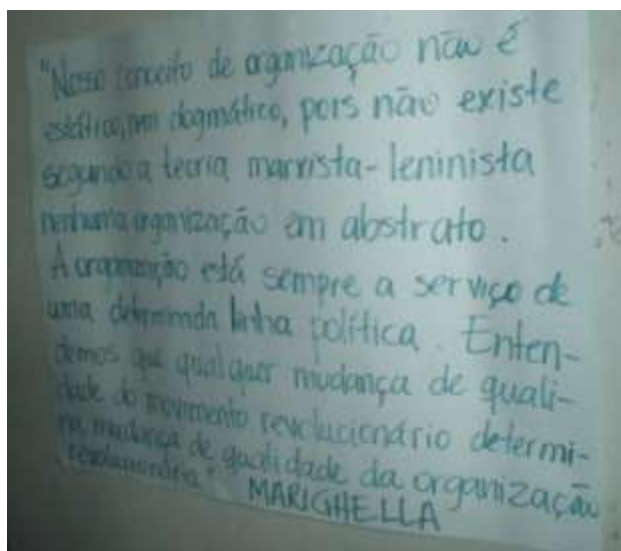 "Nosso conceito de organização não é
estático, nem dogmático, pois não existe
segundo a teoria marxista-leninista
nenhuma organização em abstrato.
A organização está sempre a serviço de
uma determinada linha política. Enten-
demos que qualquer mudança de quali-
dade do movimento revolucionário determi-
na mudança de qualidade da organização
revolucionária." MARIGHELLA